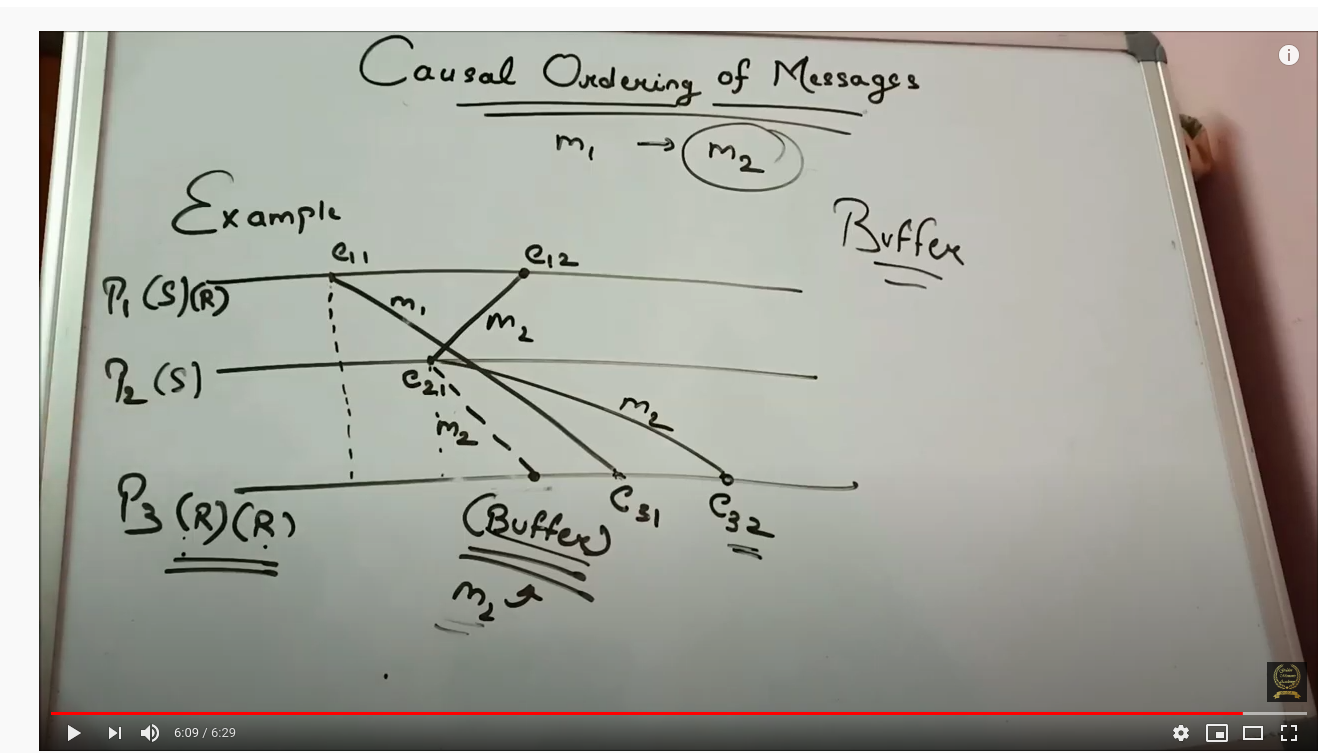 Causal Ordering of Messages
m₁ → m₂
Example
Buffer
e₁₁ e₁₂
P₁ (S)(R)
m₁ m₂
P₂ (S)
e₂₁
m₂ m₂
P₃ (R)(R)
e₃₁ e₃₂
(Buffer)
m₂
6:09 / 6:29